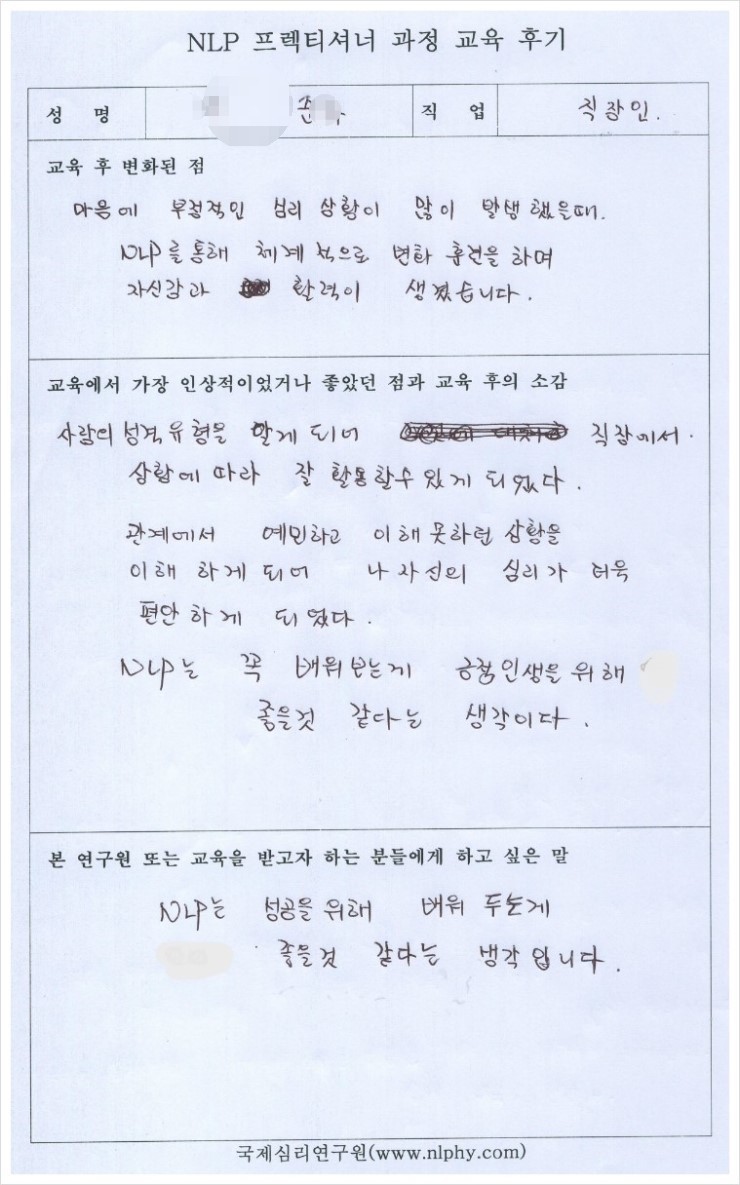 NLP 프렉티셔너 과정 교육 후기
성 명 직 업 직장인.
교육 후 변화된 점
마음에 부정적인 심리 상황이 많이 발생했을때.
NLP를 통해 체계적으로 변화 훈련을 하며
자신감과 활력이 생겼습니다.
교육에서 가장 인상적이었거나 좋았던 점과 교육 후의 소감
사람의 성격유형을 알게 되어 직장에서.
상황에 따라 잘 활용할수 있게 되었다.
관계에서 예민하고 이해 못하던 상황을
이해 하게 되어 나 자신의 심리가 더욱
편안하게 되었다.
NLP는 꼭 배워보는게 긍정인생을 위해
좋을것 같다는 생각이다.
본 연구원 또는 교육을 받고자 하는 분들에게 하고 싶은 말
NLP는 성공을 위해 배워 두는게
좋을것 같다는 생각입니다.
국제심리연구원(www.nlphy.com)